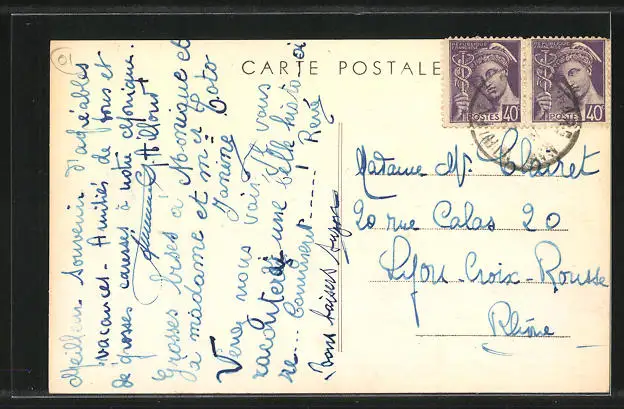 CARTE POSTALE
RÉPUBLIQUE FRANÇAISE
POSTES 40c
RÉPUBLIQUE FRANÇAISE
POSTES 40c
Meilleur souvenir d'agréables
vacances - Amitiés de tous et
de grosses caresses à notre
Grosses bises à Monique et
à madame et mr Toto
Janine
Venez nous voir, je vous
raconterai une belle histoi
re... comment..... René
Bons baisers
Madame Vve Clairet
20 rue Calas 20
Lyon-Croix-Rousse
Rhône